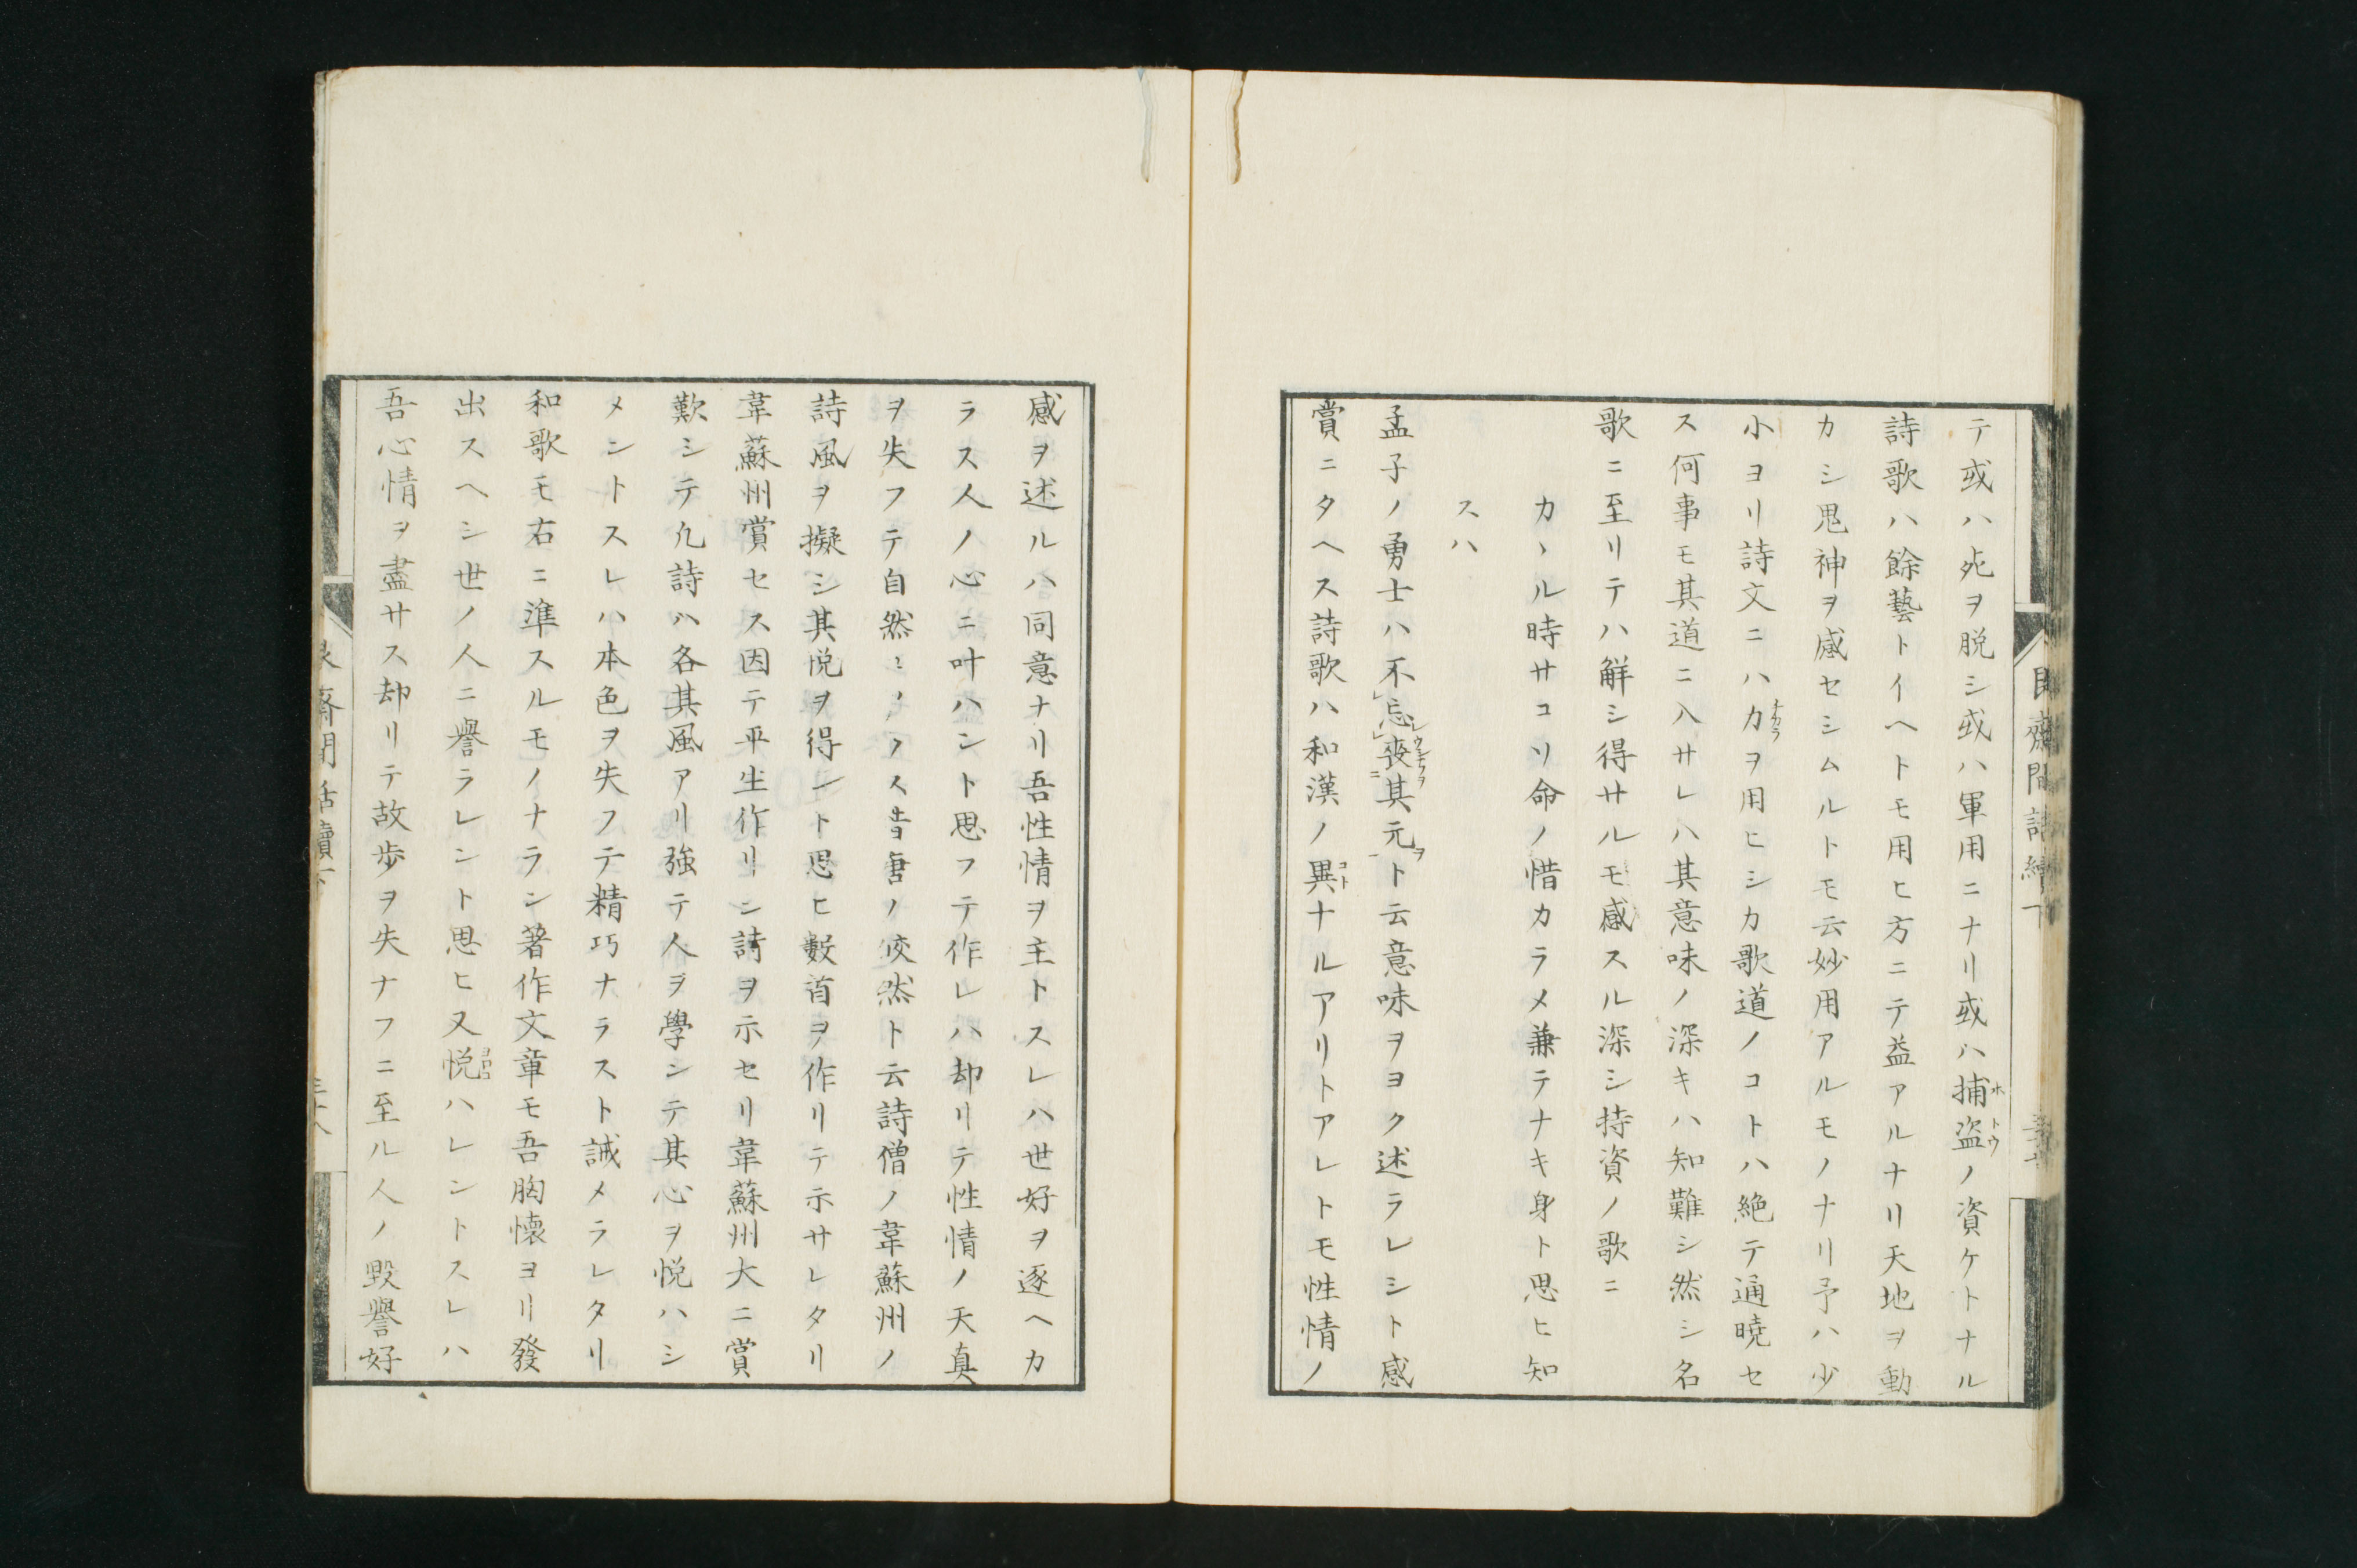 テ或ハ死ヲ脱シ或ハ軍用ニナリ或ハ捕盗ノ資ケトナル
詩歌ハ餘藝トイヘトモ用ヒ方ニテ益アルナリ天地ヲ動
カシ鬼神ヲ感セシムルトモ云妙用アルモノナリ予ハ少
小ヨリ詩文ニハ力ヲ用ヒシカ歌道ノコトハ絶テ通曉セ
ス何事モ其道ニ入サレハ其意味ノ深キハ知難シ然シ名
歌ニ至リテハ解シ得サルモ感スル深シ持資ノ歌ニ
カヽル時サコソ命ノ惜カラメ兼テナキ身ト思ヒ知
スハ
孟子ノ勇士ハ不忘喪其元ト云意味ヲヨク述ラレシト感
賞ニタヘス詩歌ハ和漢ノ異ナルアリトアレトモ性情ノ
感ヲ述ルハ同意ナリ吾性情ヲ主トスレハ世好ヲ逐ヘカ
ラス人ノ心ニ叶ハント思フテ作レハ却リテ性情ノ天真
ヲ失フテ自然ニノス昔唐ノ皎然ト云詩僧ノ韋蘇州ノ
詩風ヲ擬シ其悦ヲ得ント思ヒ數首ヲ作リテ示サレタリ
韋蘇州賞セス因テ平生作リシ詩ヲ示セリ韋蘇州大ニ賞
歎シテ凡詩ハ各其風アリ強テ人ヲ學ンテ其心ヲ悦ハシ
メントスレハ本色ヲ失フテ精巧ナラスト誡メラレタリ
和歌モ右ニ準スルモノナラン著作文章モ吾胸懐ヨリ發
出スヘシ世ノ人ニ譽ラレント思ヒ又悦ハレントスレハ
吾心情ヲ盡サス却リテ故歩ヲ失ナフニ至ル人ノ毀譽好